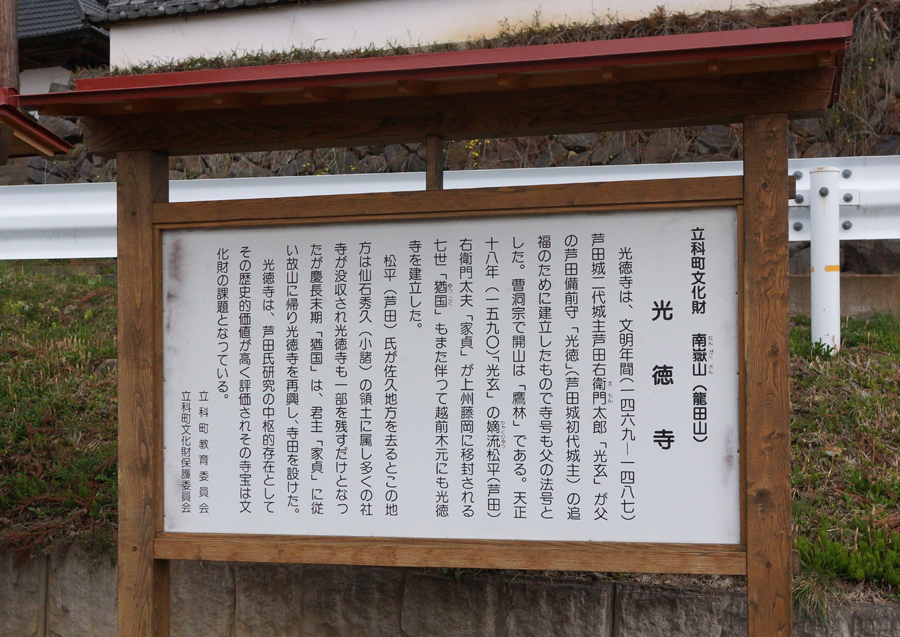 立科町文化財　南嶽山（龍田山）
光徳寺
光徳寺は、文明年間（一四六九―一四八七）
芦田城二代城主芦田右衛門太郎「光玄」が父
の芦田備前守「光徳」（芦田城初代城主）の追
福のために建立したもので寺号も父の法号と
した。曹洞宗で開山は「鷹林」である。天正
十八年（一五九〇）「光玄」の嫡流松平（芦田）
右衛門太夫「家貞」が上州藤岡に移封される
七世「猶国」もまた伴って越前木元にも光徳
寺を建立した。
松平（芦田）氏が佐久地方を去るとこの地
方は仙石秀久（小諸）の領土に属し多くの社
寺が没収され光徳寺も一部を残すだけとなっ
たが慶長末期「猶国」は、君主「家貞」に従
い故山に帰り光徳寺を再興し、寺田を設けた。
光徳寺は、芦田氏研究の中枢的存在として
その歴史的価値が高く評価されその寺宝は文
化財の課題となっている。
立科町教育委員会
立科町文化財保護委員会